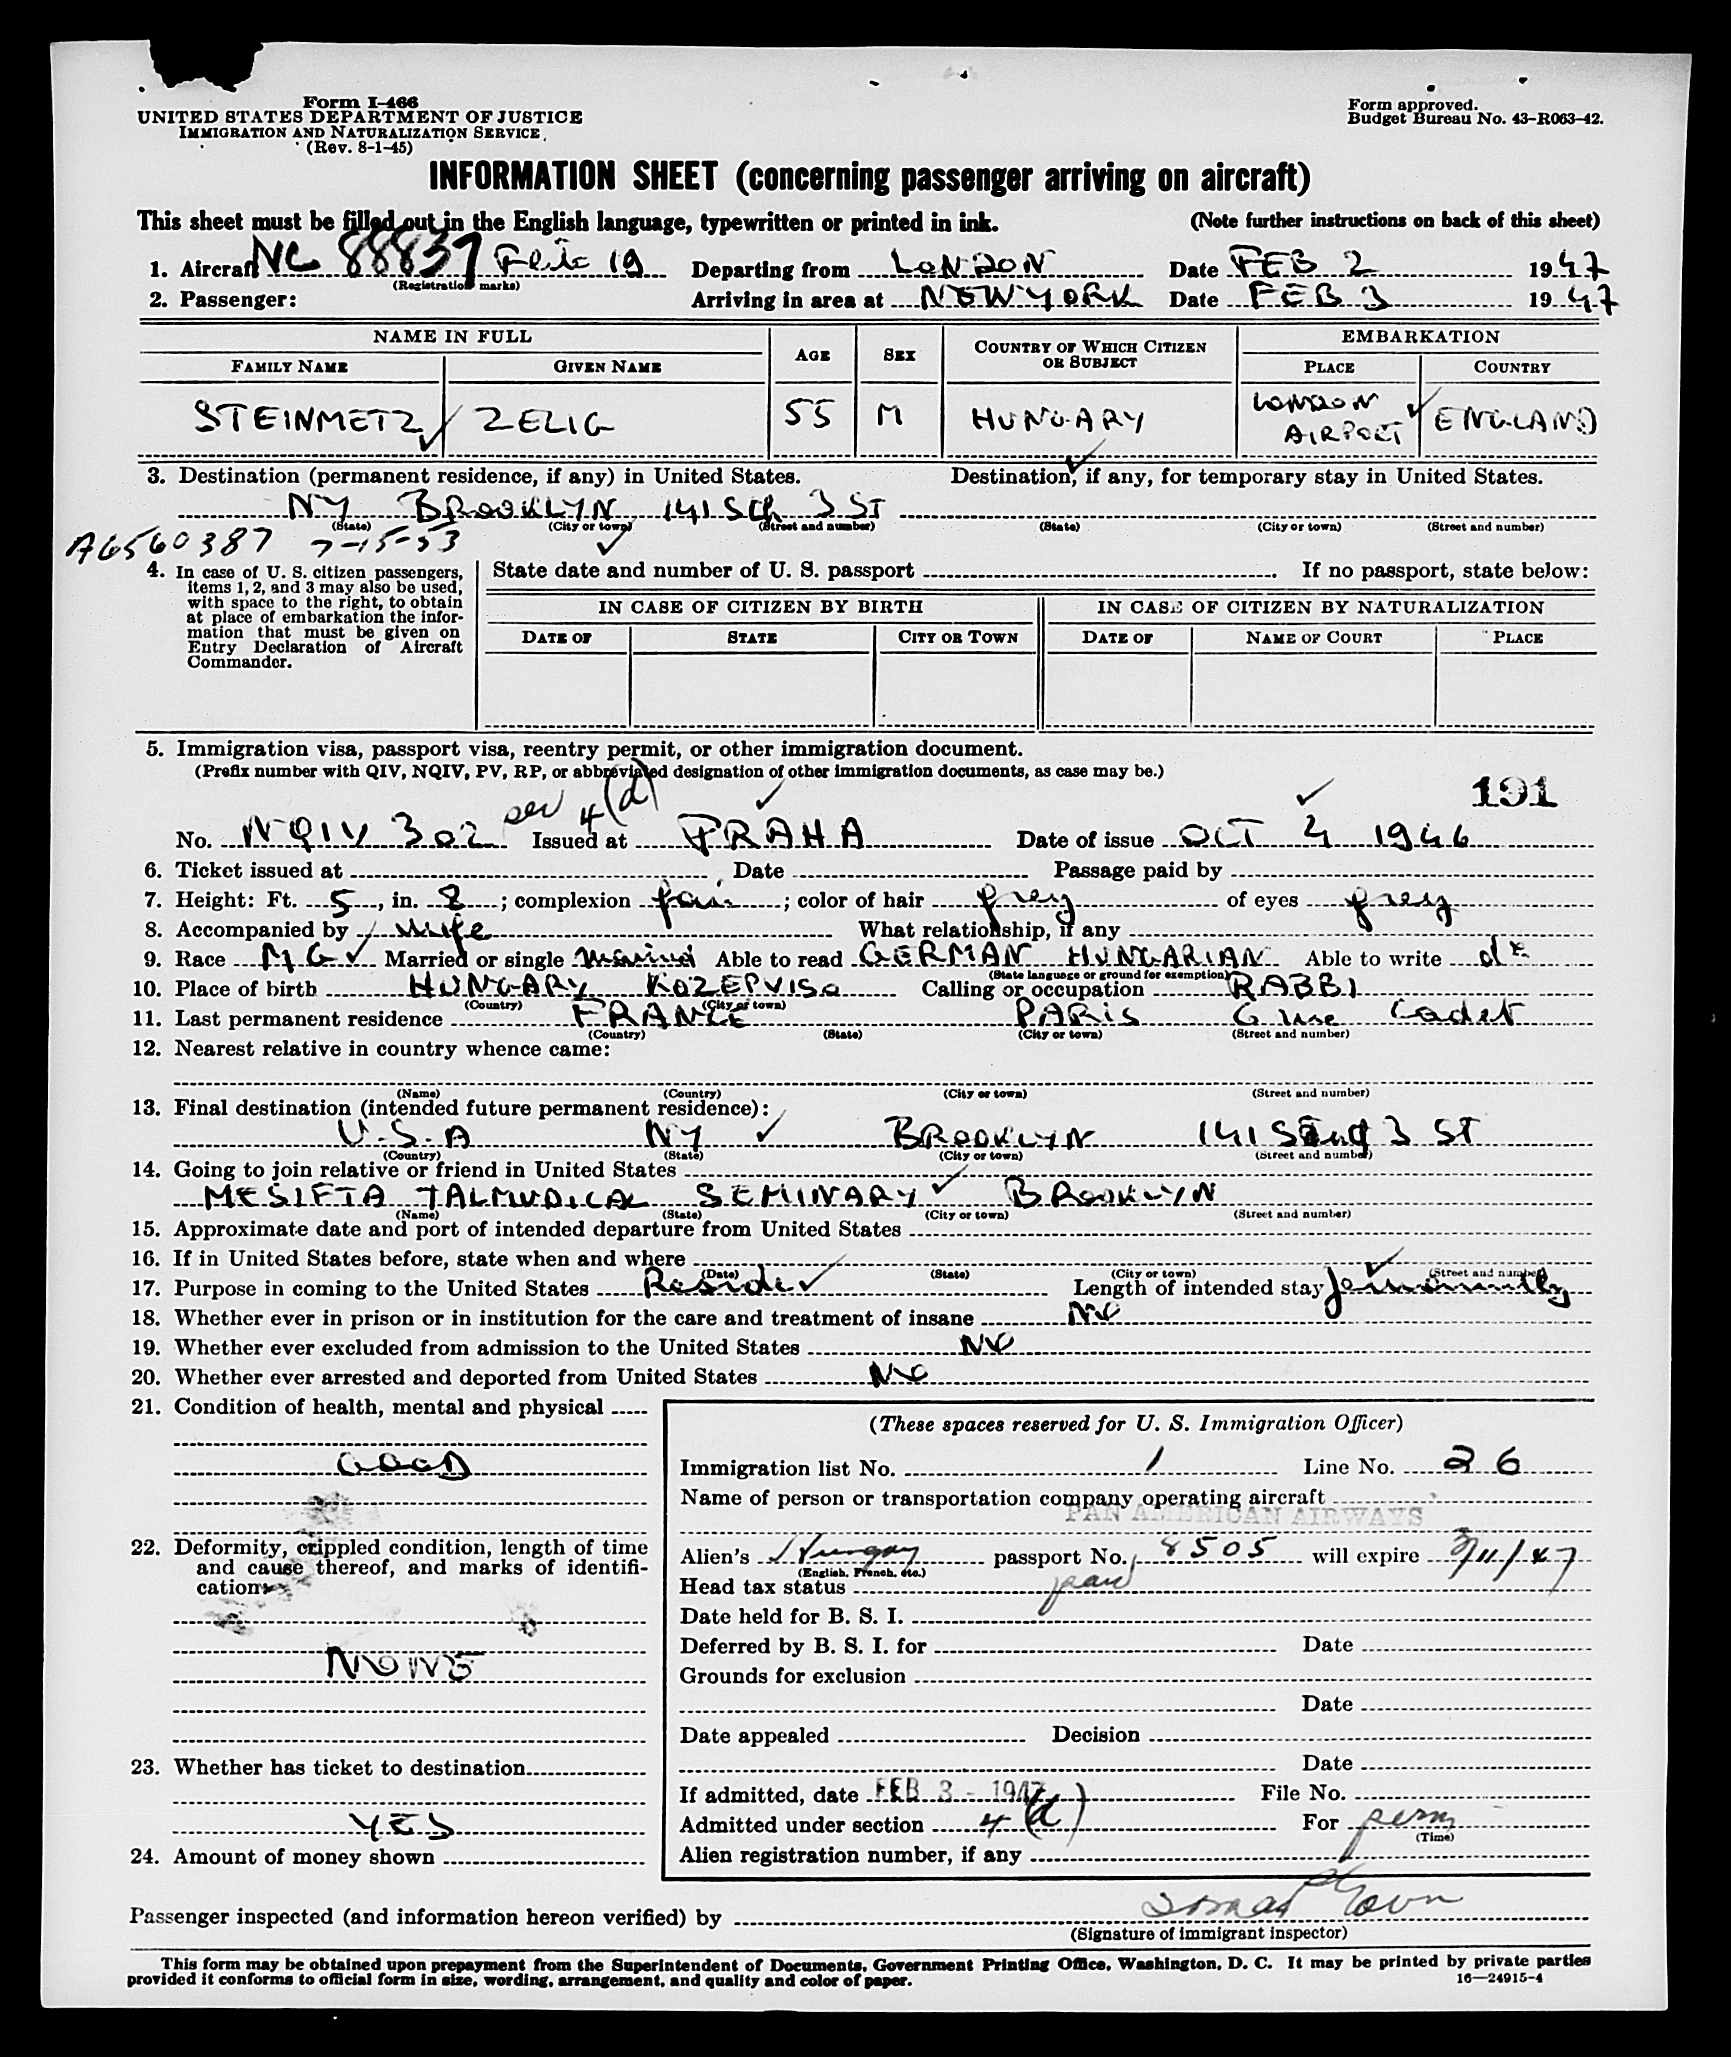 Form I-466
UNITED STATES DEPARTMENT OF JUSTICE
IMMIGRATION AND NATURALIZATION SERVICE
(Rev. 8-1-45)
Form approved.
Budget Bureau No. 43-R063-42.
INFORMATION SHEET (concerning passenger arriving on aircraft)
This sheet must be filled out in the English language, typewritten or printed in ink. (Note further instructions on back of this sheet)
1. Aircraft NC 88837 19 Departing from LONDON Date FEB 2 1947
(Registration marks)
2. Passenger: Arriving in area at NEW YORK Date FEB 3 1947
NAME IN FULL
FAMILY NAME GIVEN NAME AGE SEX COUNTRY OF WHICH CITIZEN OR SUBJECT EMBARKATION
PLACE COUNTRY
STEINMETZ ZELIG 55 M HUNGARY LONDON AIRPORT ENGLAND
3. Destination (permanent residence, if any) in United States. Destination, if any, for temporary stay in United States.
NY BROOKLYN 141 Sth 3 ST
(State) (City or town) (Street and number) (State) (City or town) (Street and number)
A6560387 7-15-53
4. In case of U. S. citizen passengers, items 1, 2, and 3 may also be used, with space to the right, to obtain at place of embarkation the information that must be given on Entry Declaration of Aircraft Commander.
State date and number of U. S. passport . If no passport, state below:
IN CASE OF CITIZEN BY BIRTH IN CASE OF CITIZEN BY NATURALIZATION
DATE OF STATE CITY OR TOWN DATE OF NAME OF COURT PLACE
5. Immigration visa, passport visa, reentry permit, or other immigration document.
(Prefix number with QIV, NQIV, PV, RP, or abbreviated designation of other immigration documents, as case may be.)
191
sec 4(d)
No. NQIV 302 Issued at PRAHA Date of issue OCT 4 1946
6. Ticket issued at Date Passage paid by
7. Height: Ft. 5, in. 8; complexion fair; color of hair grey of eyes grey
8. Accompanied by wife What relationship, if any
9. Race MG Married or single married Able to read GERMAN HUNGARIAN Able to write do
(State language or ground for exemption)
10. Place of birth HUNGARY KOZEPVISO Calling or occupation RABBI
(Country) (City or town)
11. Last permanent residence FRANCE PARIS 6 rue Cadet
(Country) (State) (City or town) (Street and number)
12. Nearest relative in country whence came:
(Name) (Country) (City or town) (Street and number)
13. Final destination (intended future permanent residence):
U.S.A NY BROOKLYN 141 3 ST
(Country) (State) (City or town) (Street and number)
14. Going to join relative or friend in United States
MESIFTA TALMUDICAL SEMINARY BROOKLYN
(Name) (State) (City or town) (Street and number)
15. Approximate date and port of intended departure from United States
16. If in United States before, state when and where
(Date) (State) (City or town) (Street and number)
17. Purpose in coming to the United States Reside Length of intended stay permanently
18. Whether ever in prison or in institution for the care and treatment of insane NO
19. Whether ever excluded from admission to the United States NO
20. Whether ever arrested and deported from United States NO
21. Condition of health, mental and physical
GOOD
22. Deformity, crippled condition, length of time and cause thereof, and marks of identification
NONE
23. Whether has ticket to destination
YES
24. Amount of money shown
(These spaces reserved for U. S. Immigration Officer)
Immigration list No. 1 Line No. 26
Name of person or transportation company operating aircraft
PAN AMERICAN AIRWAYS
Alien's Hungary passport No. 8505 will expire 3/11/47
(English, French, etc.)
Head tax status paid
Date held for B. S. I.
Deferred by B. S. I. for Date
Grounds for exclusion
Date
Date appealed Decision
Date
If admitted, date FEB 3 - 1947 File No.
Admitted under section 4(d) For perm
(Time)
Alien registration number, if any
Passenger inspected (and information hereon verified) by
(Signature of immigrant inspector)
This form may be obtained upon prepayment from the Superintendent of Documents, Government Printing Office, Washington, D. C. It may be printed by private parties
provided it conforms to official form in size, wording, arrangement, and quality and color of paper. 16—24915-4